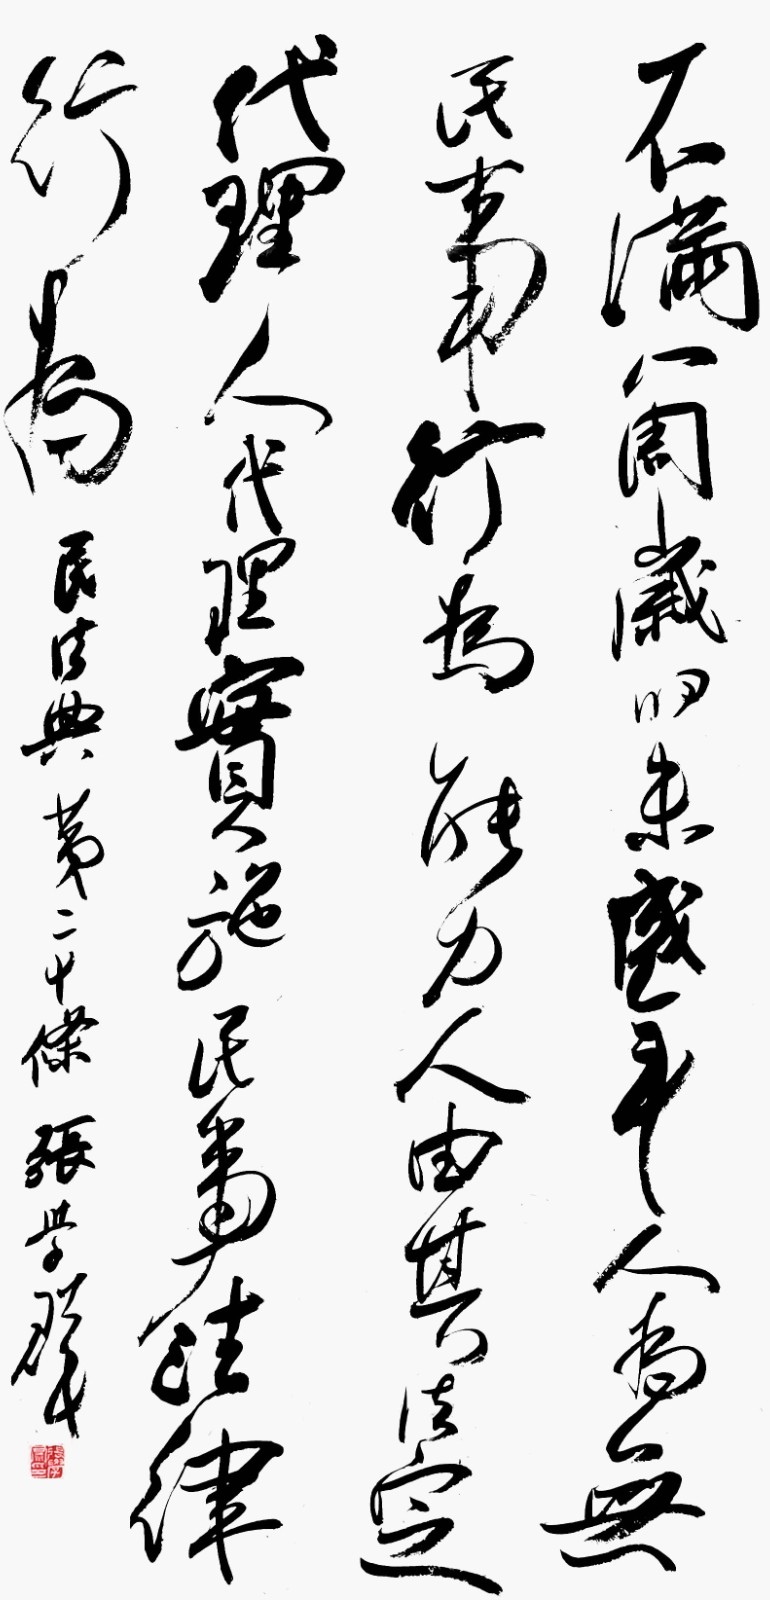 不滿八周歲的未盛年人為無
民事行為能力人由其法定
代理人代理實施民事法律
行為 民法典第二十條 張学